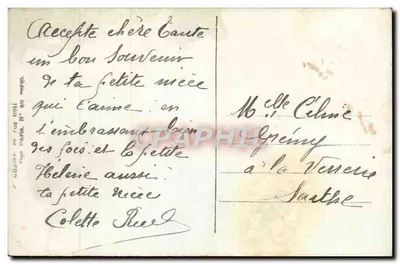 Accepte chère tante
un bon souvenir
de ta petite nièce
qui t'aime en
t'embrassant bien
des fois et la petite
Hélène aussi
ta petite nièce
Colette
Melle Céline
à la Verrerie
Sarthe